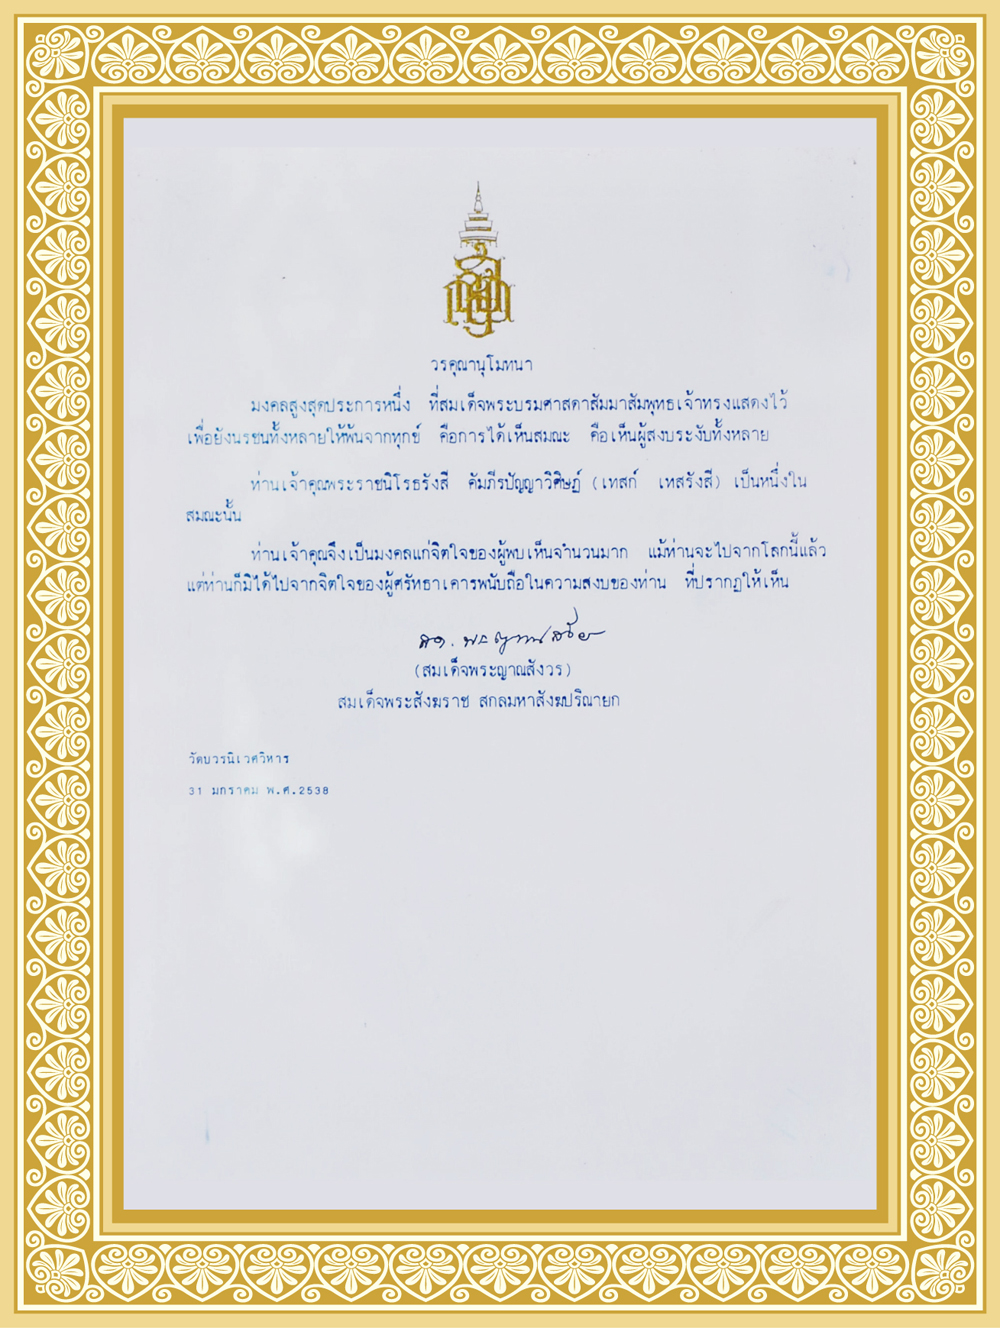 วรคุณานุโมทนา
มงคลสูงสุดประการหนึ่ง ที่สมเด็จพระบรมศาสดาสัมมาสัมพุทธเจ้าทรงแสดงไว้
เพื่อยังนรชนทั้งหลายให้พ้นจากทุกข์ คือการได้เห็นสมณะ คือเห็นผู้สงบระงับทั้งหลาย
ท่านเจ้าคุณพระราชนิโรธรังสี คัมภีรปัญญาวิศิษฏ์ (เทสก์ เทสรังสี) เป็นหนึ่งใน
สมณะนั้น
ท่านเจ้าคุณจึงเป็นมงคลแก่จิตใจของผู้พบเห็นจำนวนมาก แม้ท่านจะไปจากโลกนี้แล้ว
แต่ท่านก็มิได้ไปจากจิตใจของผู้ศรัทธาเคารพนับถือในความสงบของท่าน ที่ปรากฏให้เห็น
(สมเด็จพระญาณสังวร)
สมเด็จพระสังฆราช สกลมหาสังฆปริณายก
วัดบวรนิเวศวิหาร
31 มกราคม พ.ศ.2538